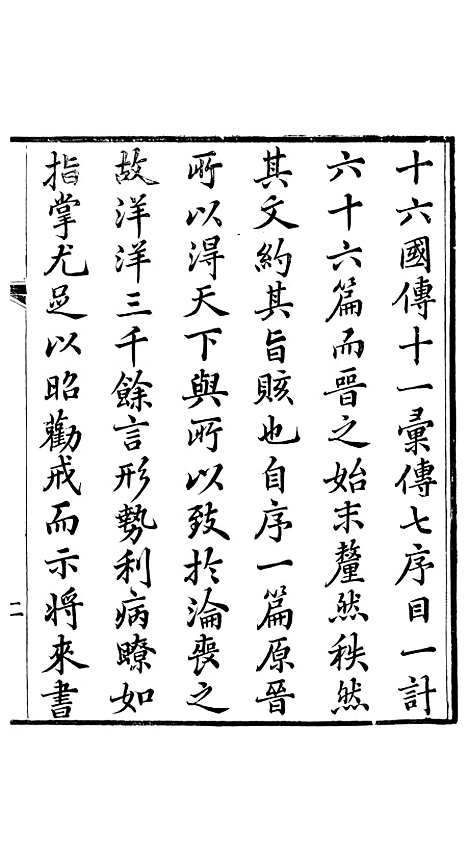 十六國傳十一彙傳七序目一計
六十六篇而晉之始末釐然秩然
其文約其旨賅也自序一篇原晉
所以得天下與所以致於淪喪之
故洋洋三千餘言形勢利病瞭如
指掌尤足以昭勸戒而示將來書
二